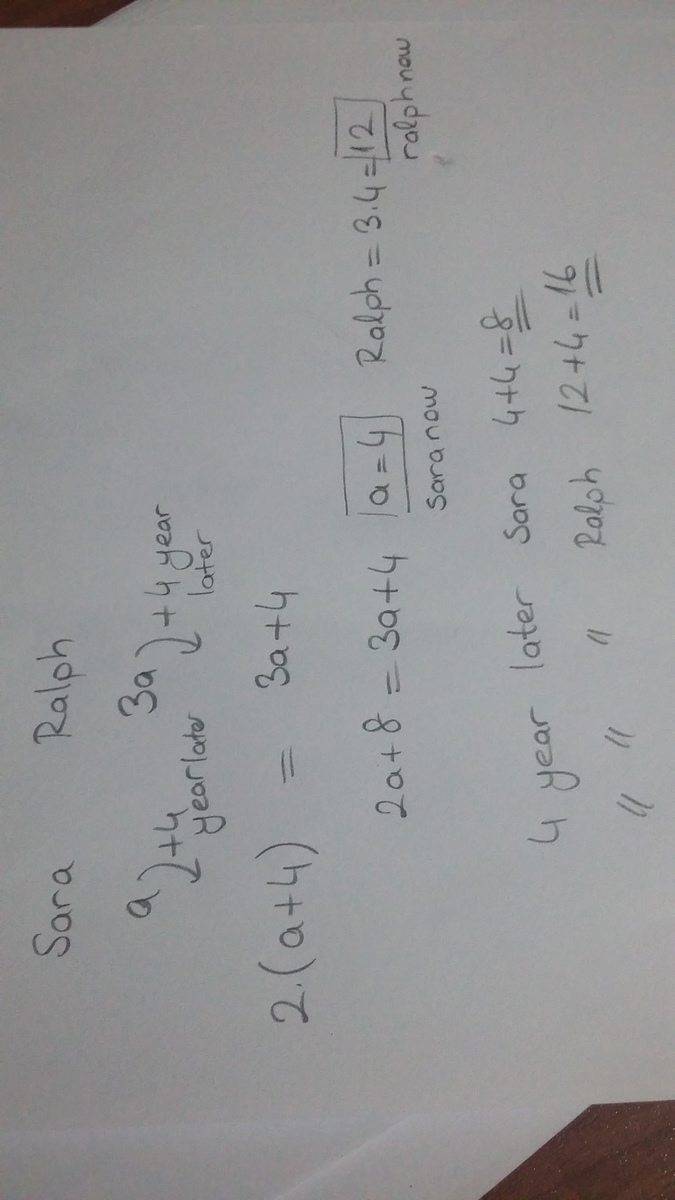 Sara Ralph
a 3a
+4 +4 year
year later later
2.(a+4) = 3a+4
2a+8 = 3a+4 a=4 Ralph = 3.4=12
sara now ralph now
4 year later Sara 4+4=8
" " " Ralph 12+4=16